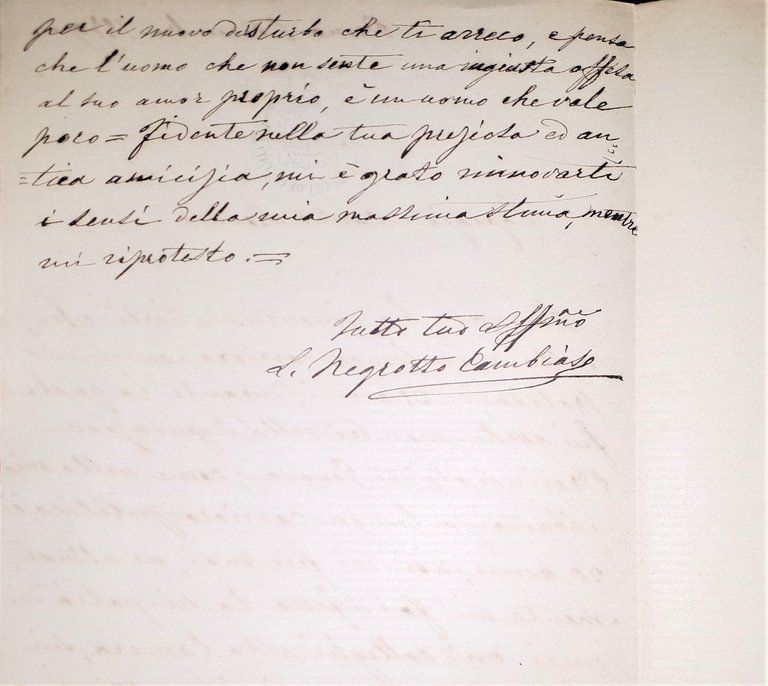 per il nuovo disturbo che ti arreco, e pensa
che l'uomo che non sente una ingiusta offesa
al suo amor proprio, è un uomo che vale
poco = Fidente nella tua preziosa ed an
=tica amicizia, mi è grato rinnovarti
i sensi della mia massima stima, mentre
mi riprotesto. =
Tutto tuo Affmo
L. Negrotto Cambiaso